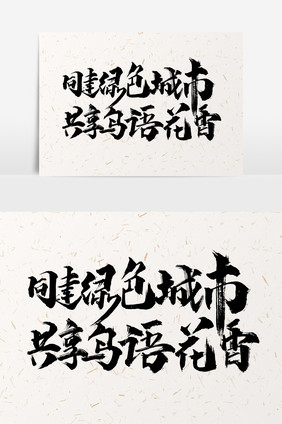 同建绿色城市
共享鸟语花香
同建绿色城市
共享鸟语花香